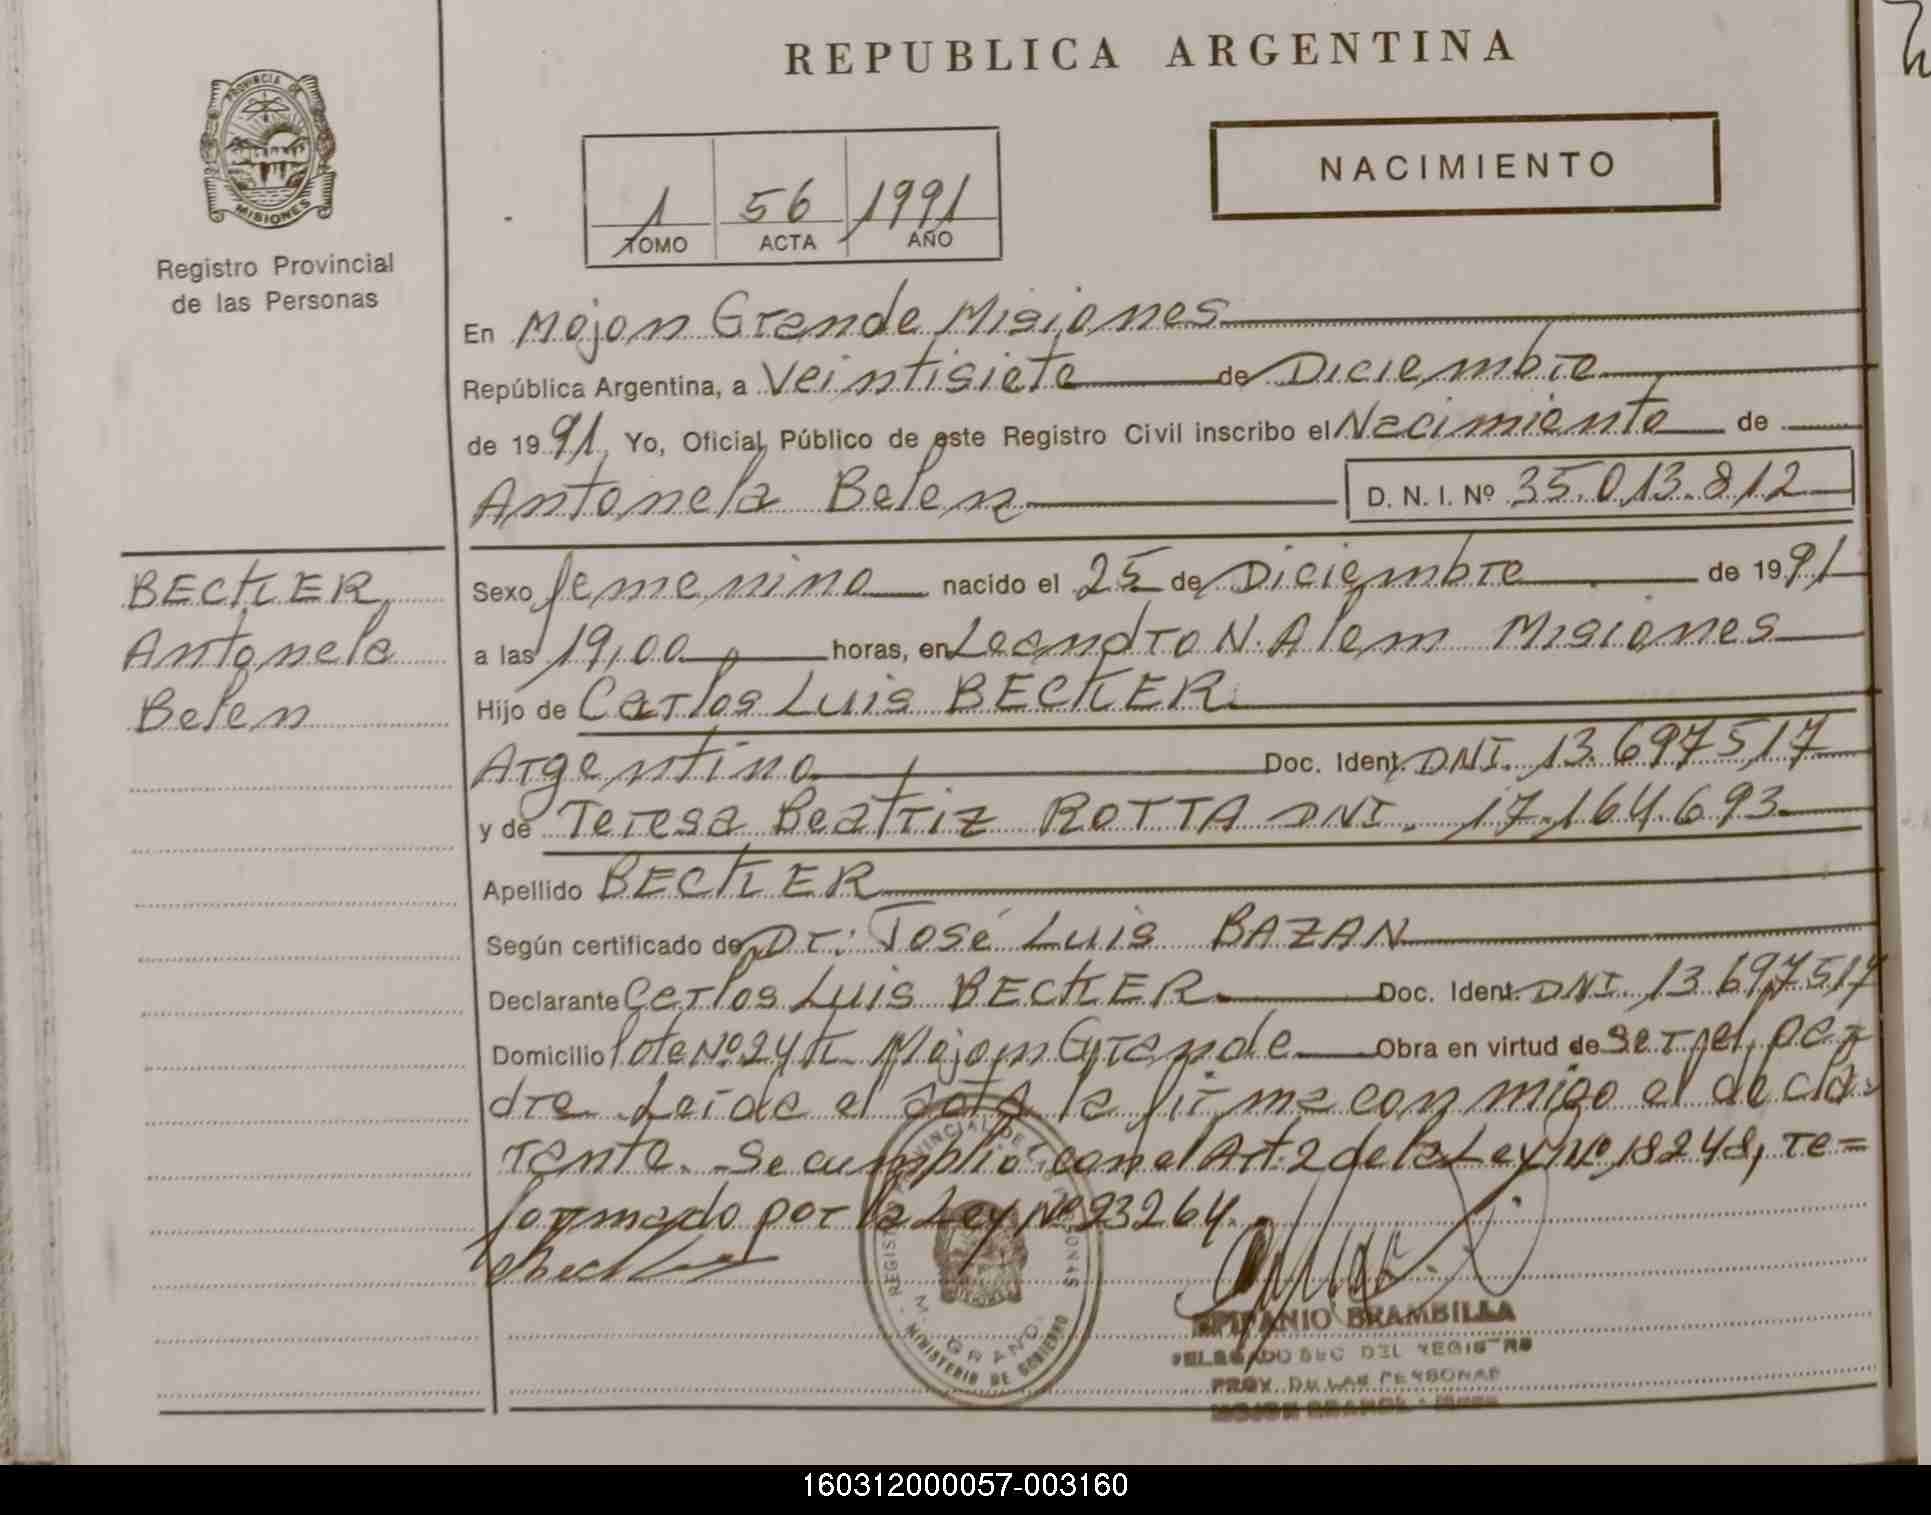 REPUBLICA ARGENTINA
PROVINCIA DE
MISIONES
Registro Provincial
de las Personas
1 56 1991
TOMO ACTA AÑO
NACIMIENTO
En Mojon Grande Misiones
República Argentina, a Veintisiete de Diciembre
de 1991, Yo, Oficial Público de este Registro Civil inscribo el Nacimiento de
Antonela Belen D. N. I. Nº 35.013.812
BECKER
Antonela
Belen
Sexo femenino nacido el 25 de Diciembre de 1991
a las 19,00 horas, en Leandro N. Alem Misiones
Hijo de Carlos Luis BECKER
Argentino Doc. Ident. DNI. 13.697517
y de Teresa Beatriz ROTTA DNI. 17.164.693
Apellido BECKER
Según certificado de Dr: José Luis BAZAN
Declarante Carlos Luis BECKER Doc. Ident. DNI. 13 697517
Domicilio lote Nº 24 Mojon Grande Obra en virtud de ser el pa
dre. Leida el acta la firma conmigo el decla-
rante. Se cumplio con el Art. 2 de la Ley Nº 18248, re=
formado por la Ley Nº 23264.
REGISTRO PROVINCIAL DE LAS PERSONAS
M. GRANDE
MINISTERIO DE GOBIERNO
EPIFANIO BRAMBILLA
DELEGADO SEC DEL REGISTRO
PROV. DE LAS PERSONAS
MOJON GRANDE - MNES
160312000057-003160